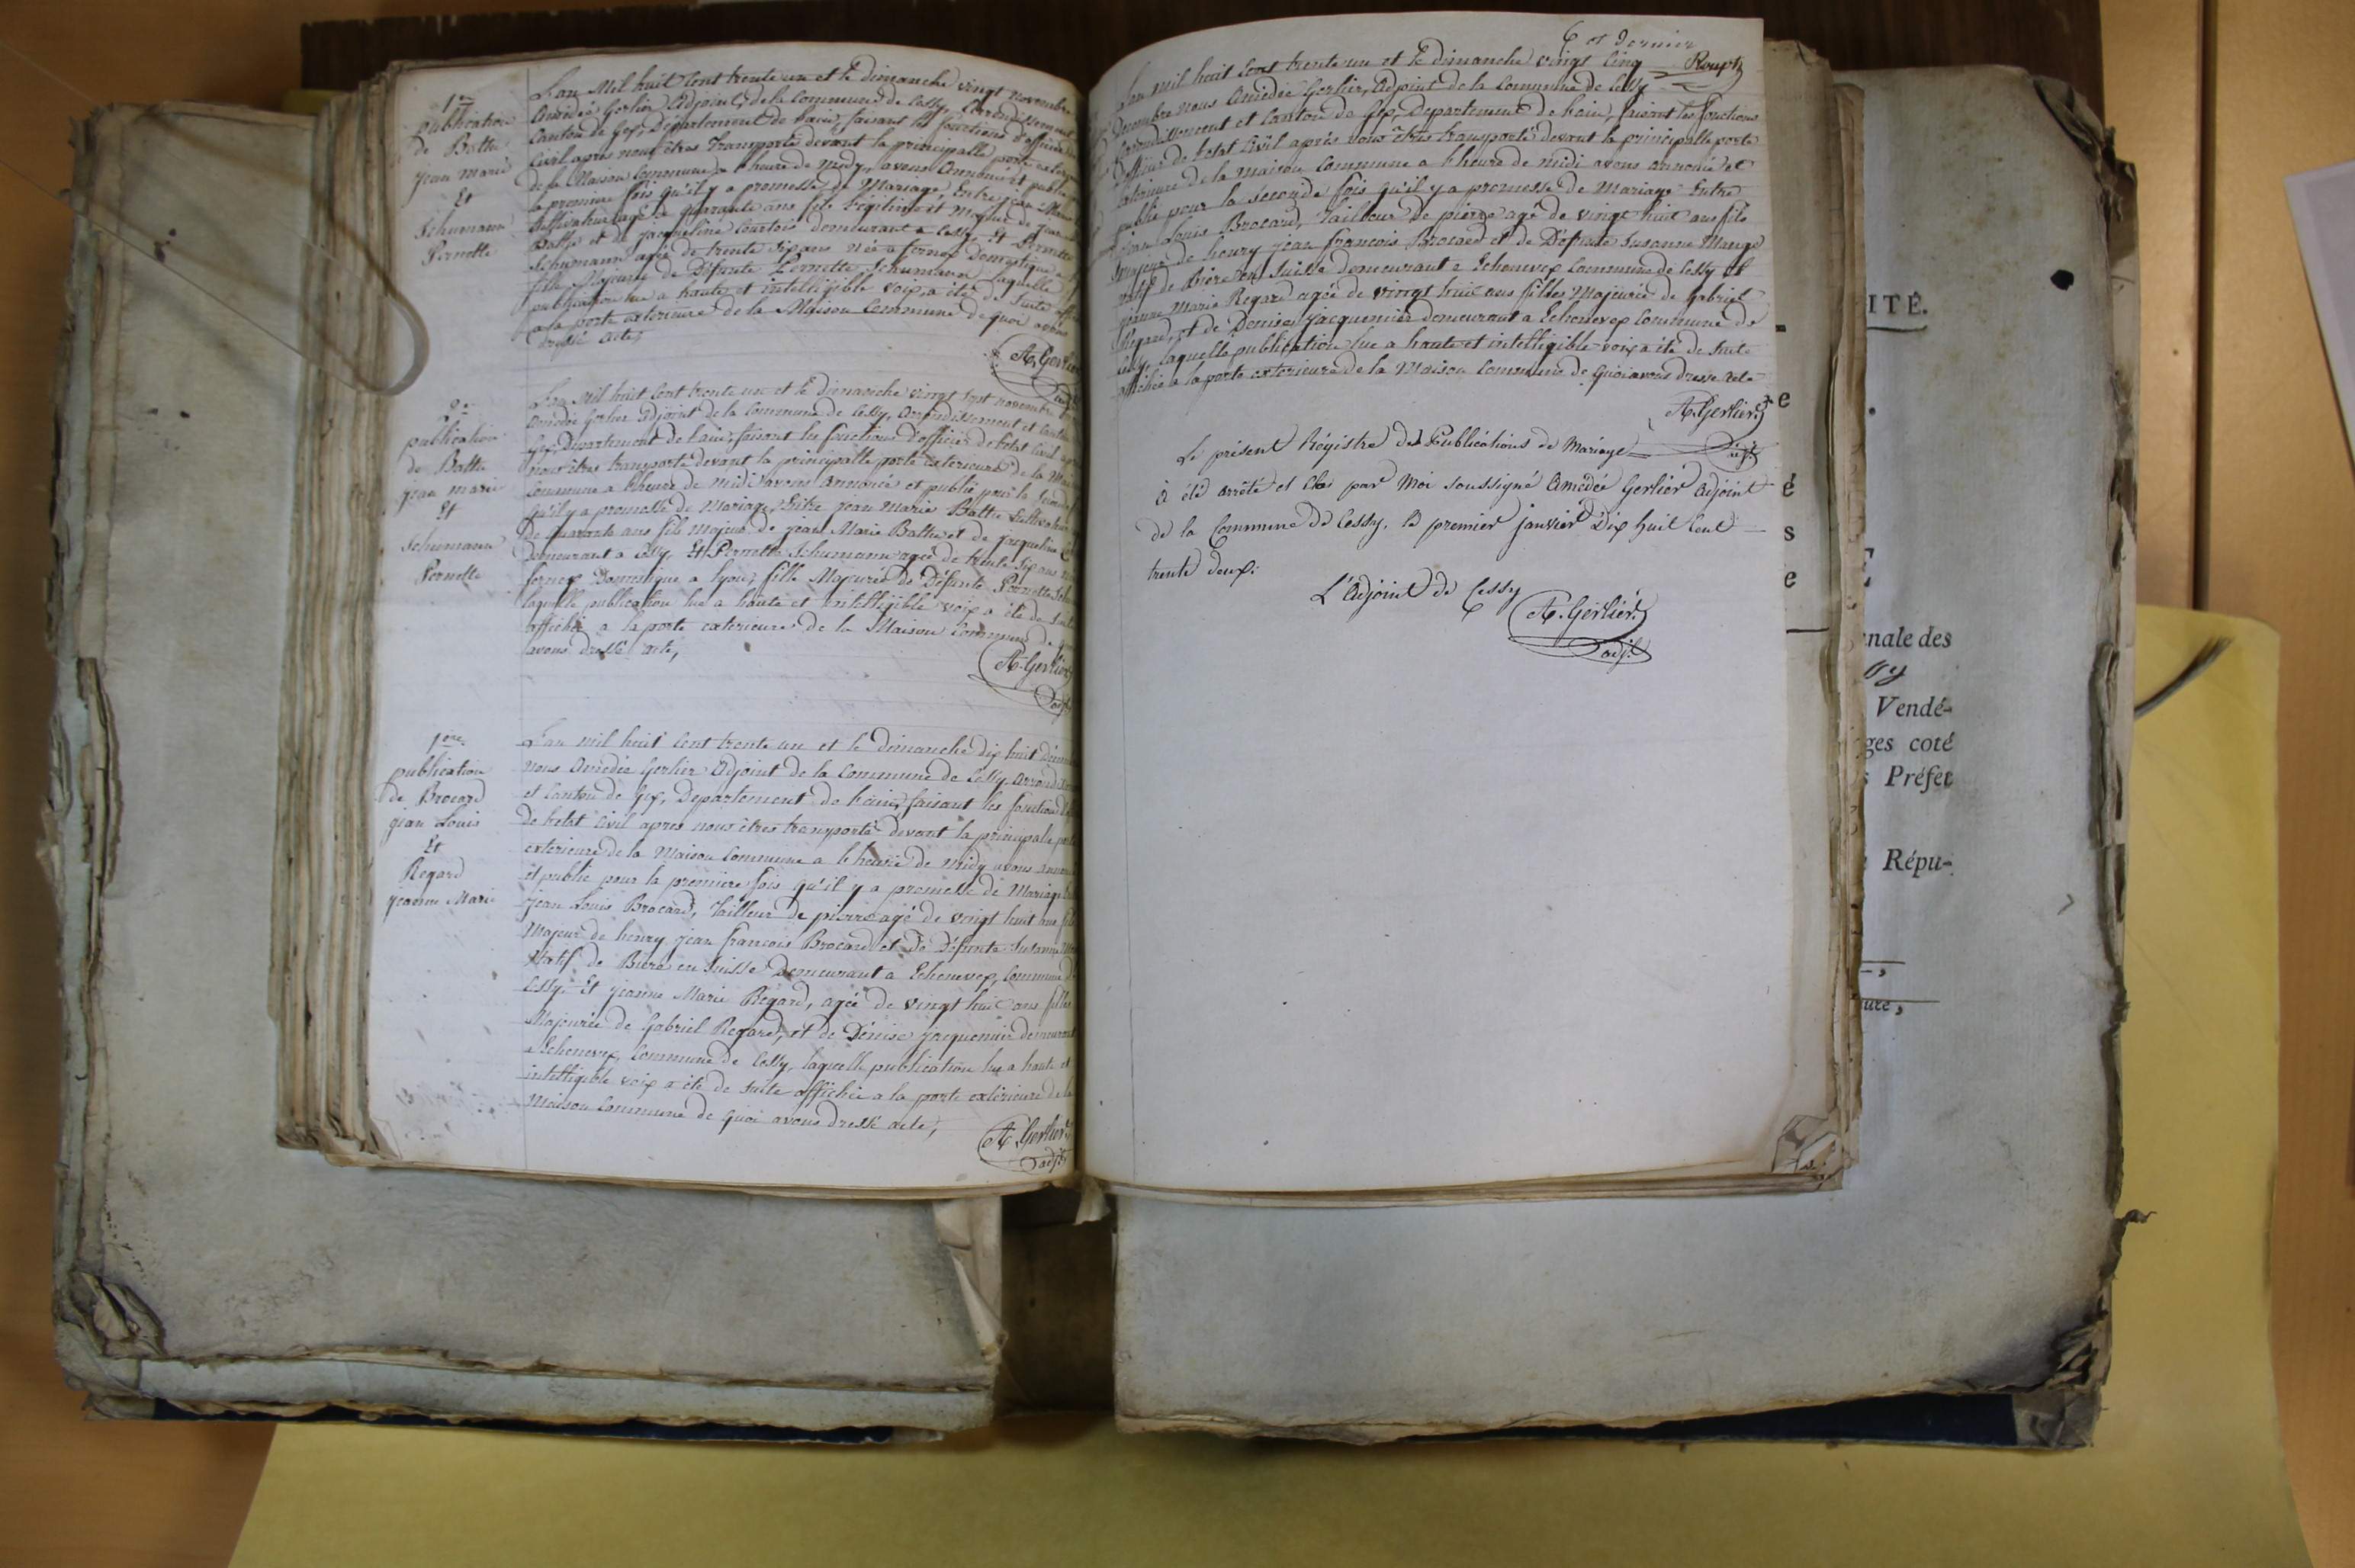 1re
publication
de Battu
jean marie
Et
Schumann
Pernette
L'an Mil huit Cent trente un et le dimanche vingt novembre
Amédée Gerlier Adjoint, de la Commune de Cessy, Arrondissement
Canton de Gex, Département de l'ain, faisant les fonctions d'officier
Civil apres nous êtres transporté devant la principalle porte
de la Maison Commune a l'heure de midy, avons Annoncé et publié
la premiere fois qu'il y a promesse de Mariage, Entre jean Marie
Cultivateur agé de quarante ans fils Légitime et Majeur de jean
Battu et de jacqueline Courtois demeurant a Cessy, Et Pernette
Schumann agée de trente six ans née a fernex Domestique a
fille Majeure de Défunte Pernette Schumann, laquelle
publication lue a haute et intelligible voix, a été de Suite
a la porte exterieure de la Maison Commune de quoi avons
dressé acte,
A. Gerlier
2e
publication
de Battu
jean marie
Et
Schumann
Pernette
L'an Mil huit Cent trente un et le dimanche vingt sept novembre
Amédée Gerlier adjoint de la Commune de Cessy, arrondissement et Canton
Gex, Département de l'ain, faisant les fonctions d'officier de l'etat Civil
nous êtres transporté devant la principalle porte exterieure de la
Commune a l'heure de midi avons annoncé et publié pour la
qu'il y a promesse de Mariage, Entre jean Marie Battu Cultivateur
De quarante ans fils majeur de jean Marie Battu et de jacqueline
demeurant a Cessy, Et Pernette Schumann agée de trente six ans
fernex Domestique a lyon, fille Majeurée de Défunte Pernette
laquelle publication lue a haute et intelligible voix a été de suite
affichée a la porte exterieure de la Maison Commune de
avons dressé acte,
A. Gerlier
adjt
1ère
publication
de Brocard
jean Louis
Et
Regard
jeanne Marie
L'an mil huit Cent trente un et le dimanche dix huit
nous Amédée Gerlier Adjoint de la Commune de Cessy, arrond
et Canton de Gex, Departement de l'ain, faisant les fonctions
de l'etat Civil apres nous êtres transporté devant la principalle
exterieure de la Maison Commune a l'heure de midy avons
et publié pour la premiere fois qu'il y a promesse de Mariage
jean Louis Brocard, tailleur de pierre agé de vingt huit ans fils
Majeur de henry jean francois Brocard et de Défunte Susanne
Natif de Bière en Suisse Demeurant a Echenevex, Commune de
Cessy. Et jeanne Marie Regard, agée de vingt huit ans filles
Majeurée de Gabriel Regard, et de Dénise jacquemier demeurant
a Echenevex, Commune de Cessy, laquelle publication lue a haute et
intelligible voix a été de suite affichée a la porte exterieure de la
Maison Commune de quoi avons dressé acte,
A. Gerlier
adjt
6 et dernier
Roupt
L'an mil huit Cent trente un et le dimanche vingt Cinq
Decembre nous Amédée Gerlier, Adjoint de la Commune de Cessy
Arrondissement et Canton de Gex, Departement de l'ain, faisant les fonctions
d'officier de l'etat Civil après nous êtres transporté devant la principalle porte
exterieure de la maison Commune a l'heure de midi avons annoncé et
publié pour la seconde fois qu'il y a promesse de Mariage Entre
jean Louis Brocard, tailleur de pierre agé de vingt huit ans fils
majeur de henry jean francois Brocard et de Défunte Susanne Mange
natif de Bière en Suisse demeurant a Echenevex Commune de Cessy et
jeanne Marie Regard agée de vingt huit ans filles Majeurée de Gabriel
Regard, et de Denise jacquemier demeurant a Echenevex Commune de
Cessy, laquelle publication lue a haute et intelligible voix a été de suite
affichée a la porte exterieure de la Maison Commune de quoi avons dressé acte
A. Gerlier
adjt
Le présent Régistre des Publications de Mariage
à été arrêté et clos par Moi soussigné Amédée Gerlier Adjoint
de la Commune de Cessy, le premier janvier Dix huit Cent
trente deux.
L'Adjoint de Cessy
A. Gerlier
adjt
e
é
s
e
ITÉ.
nale des
Vendé-
ges coté
Préfet
Répu-
ure,